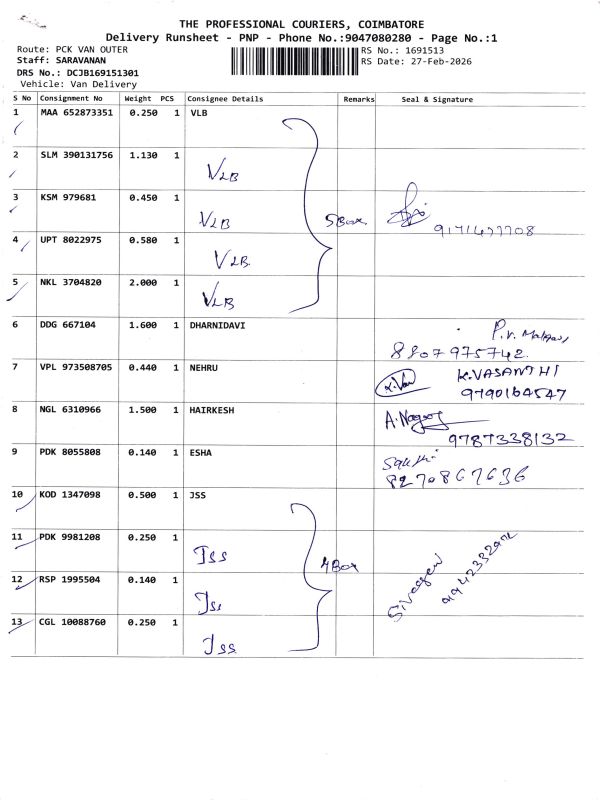 THE PROFESSIONAL COURIERS, COIMBATORE
Delivery Runsheet - PNP - Phone No.:9047080280 - Page No.:1
Route: PCK VAN OUTER RS No.: 1691513
Staff: SARAVANAN RS Date: 27-Feb-2026
DRS No.: DCJB169151301
Vehicle: Van Delivery
S No Consignment No Weight PCS Consignee Details Remarks Seal & Signature
1 MAA 652873351 0.250 1 VLB
2 SLM 390131756 1.130 1 VLB
3 KSM 979681 0.450 1 VLB 5 Box
4 UPT 8022975 0.580 1 VLB
5 NKL 3704820 2.000 1 VLB
6 DDG 667104 1.600 1 DHARNIDAVI 8807975742
7 VPL 973508705 0.440 1 NEHRU K.VASANTHI
9790164547
8 NGL 6310966 1.500 1 HAIRKESH A.Nagaraj
9787338132
9 PDK 8055808 0.140 1 ESHA Sakthi
8270867636
10 KOD 1347098 0.500 1 JSS
11 PDK 9981208 0.250 1 Jss 4 Box
12 RSP 1995504 0.140 1 Jss
13 CGL 10088760 0.250 1 Jss